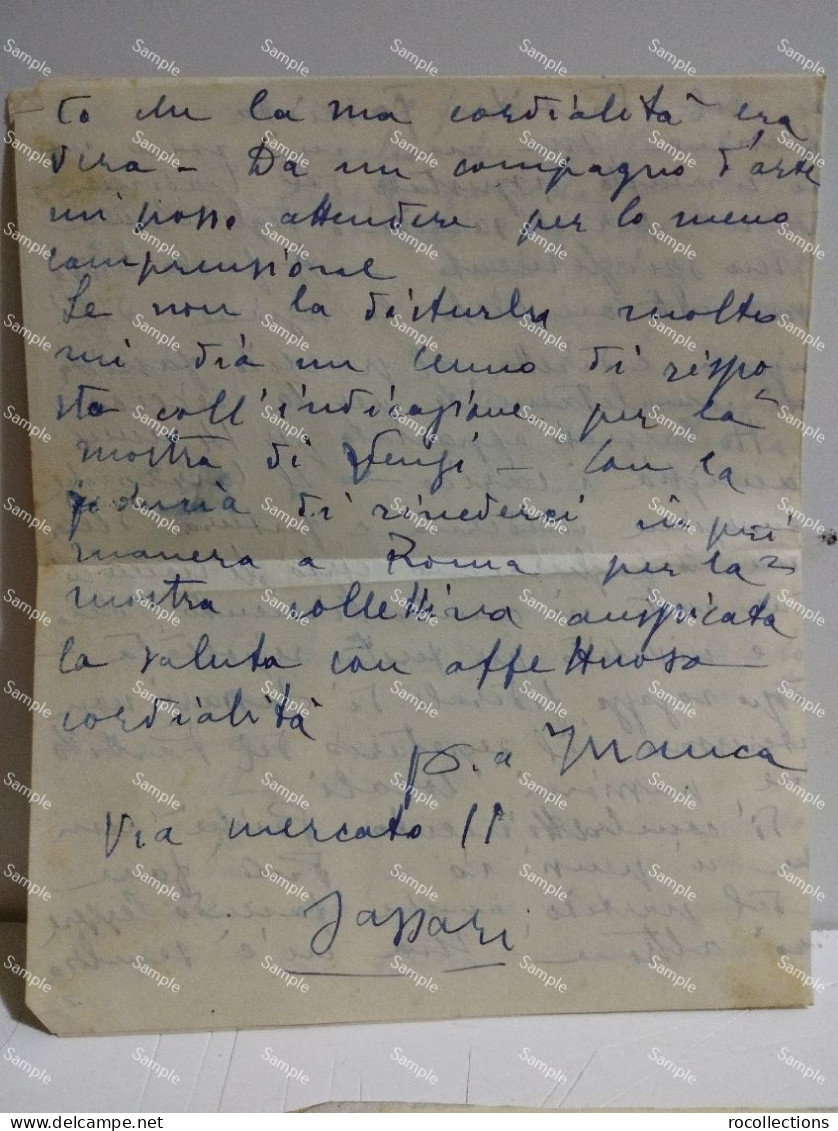 to che la mia cordialità era
vera - Da un compagno d'arte
mi posso attendere per lo meno
comprensione
Se non la disturbo molto
mi dia un cenno di rispo
sta coll'indicazione per la
mostra di - Con la
fiducia di rivederci in pri
manera a Roma per la
mostra collettiva auspicata
la saluta con affettuosa
cordialità
Manca
Via mercato 11
Sassari
delcampe.net
rocollections